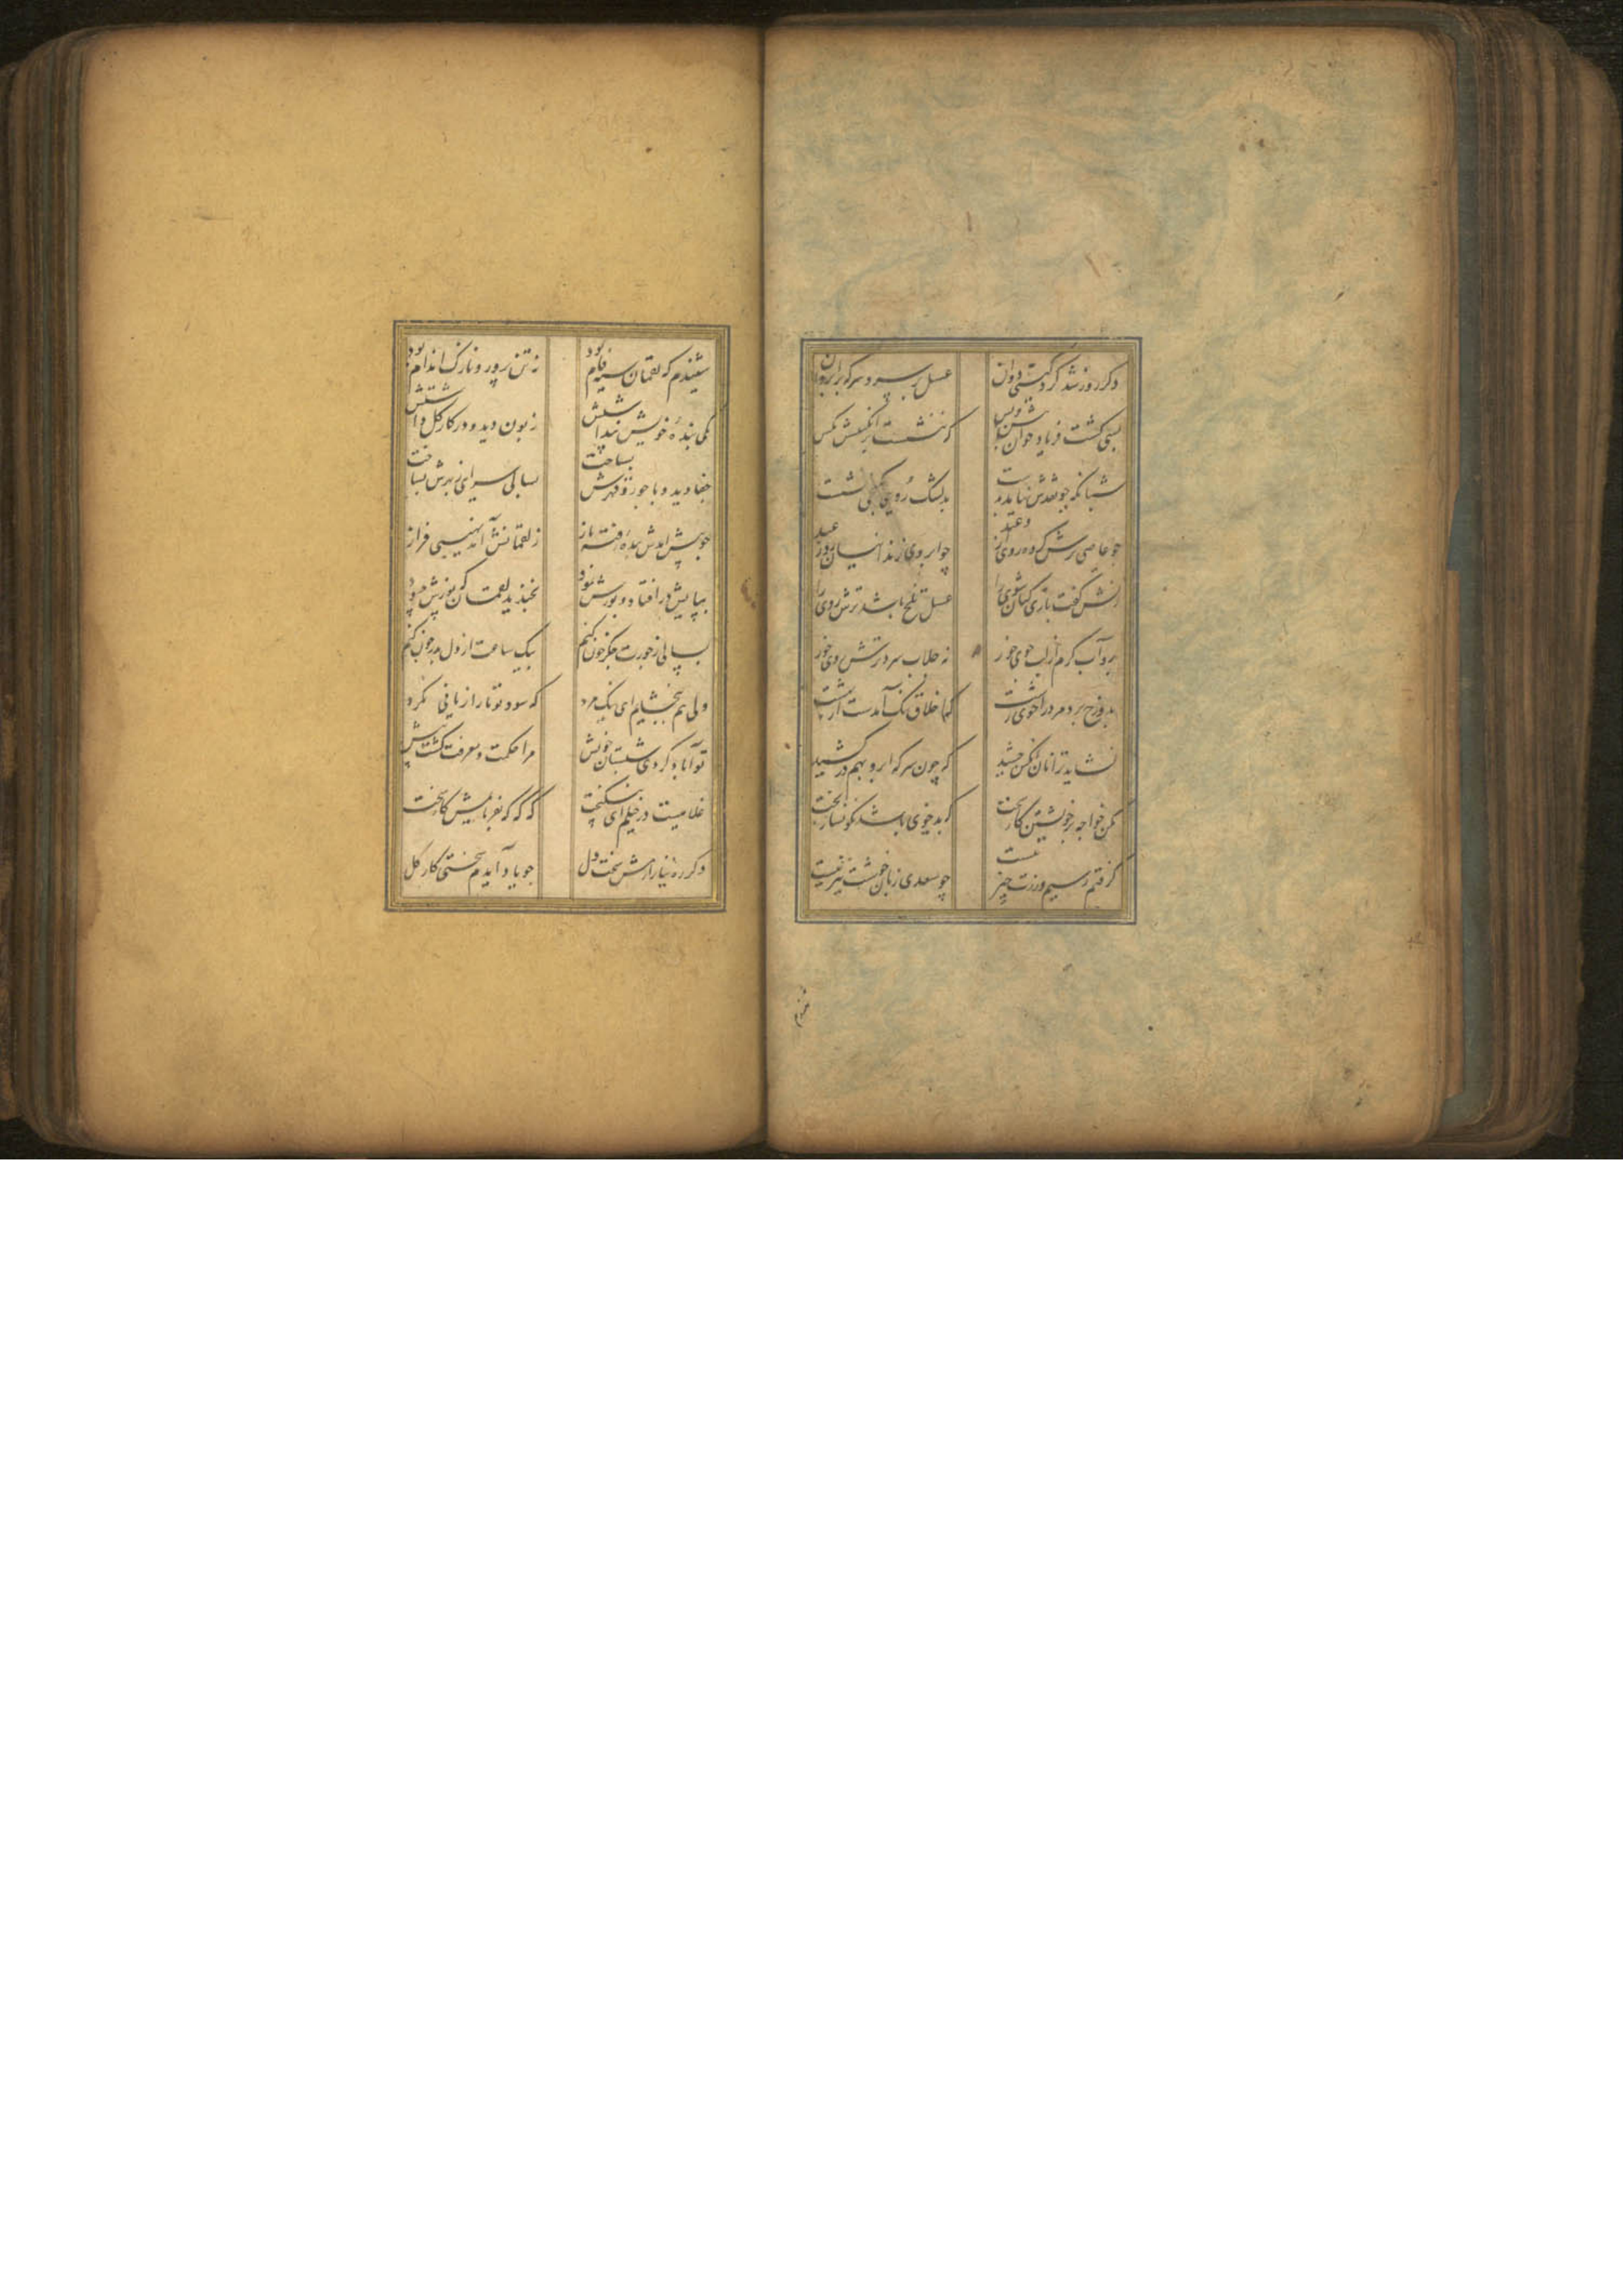 دکر روز شد کرد کیتی دوان عسل بر سر و سرکه بر ابروان
بسی کشت فریاد خوان پیش و پس که ننشست بر انکبینش مکس
شبانکه چو نقدش نیامد بدست بدلتنک رویی بکنجی نشست
چو عاصی ترش کرده روی از وعید چو ابروی زندانیان روز عید
زنش کفت بازی کنان شوی را عسل تلخ باشد ترش روی را
برو آب کرم از لب جوی خور نه جلاب سرد ترش روی خور
بدوزخ برد مرد را خوی زشت که اخلاق نیک آمدست از بهشت
نشاید ترا نان آنکس چشید که چون سرکه ابرو بهم در کشید
مکن خواجه بر خویشتن کار سخت که بد خوی باشد نکونسار بخت
کرفتم که سیم و زرت چیز نیست چو سعدی زبان خوشت نیز نیست
شنیدم که لقمان سیه فام بود نه تن پرور و نازک اندام بود
یکی بنده خویش پنداشتش زبون دید و در کار کل داشتش
جفا دید و با جور و قهرش بساخت بسالی سرایی ز بهرش بساخت
چو پیش آمدش بنده رفته باز ز لقمانش آمد نهیبی فراز
بپایش در افتاد و پوزش نمود بخندید لقمان که پوزش چه سود
بسالی ز جورت جکر خون کنم بیک ساعت از دل بدر چون کنم
ولی هم ببخشایم ای نیک مرد که سود تو ما را زیانی نکرد
تو آباد کردی شبستان خویش مرا حکمت و معرفت کشت بیش
غلامیست در خیلم ای نیکبخت که که که بفرمایمش کار سخت
دکر ره نیازارمش سخت دل چو یاد آیدم سختی کار کل